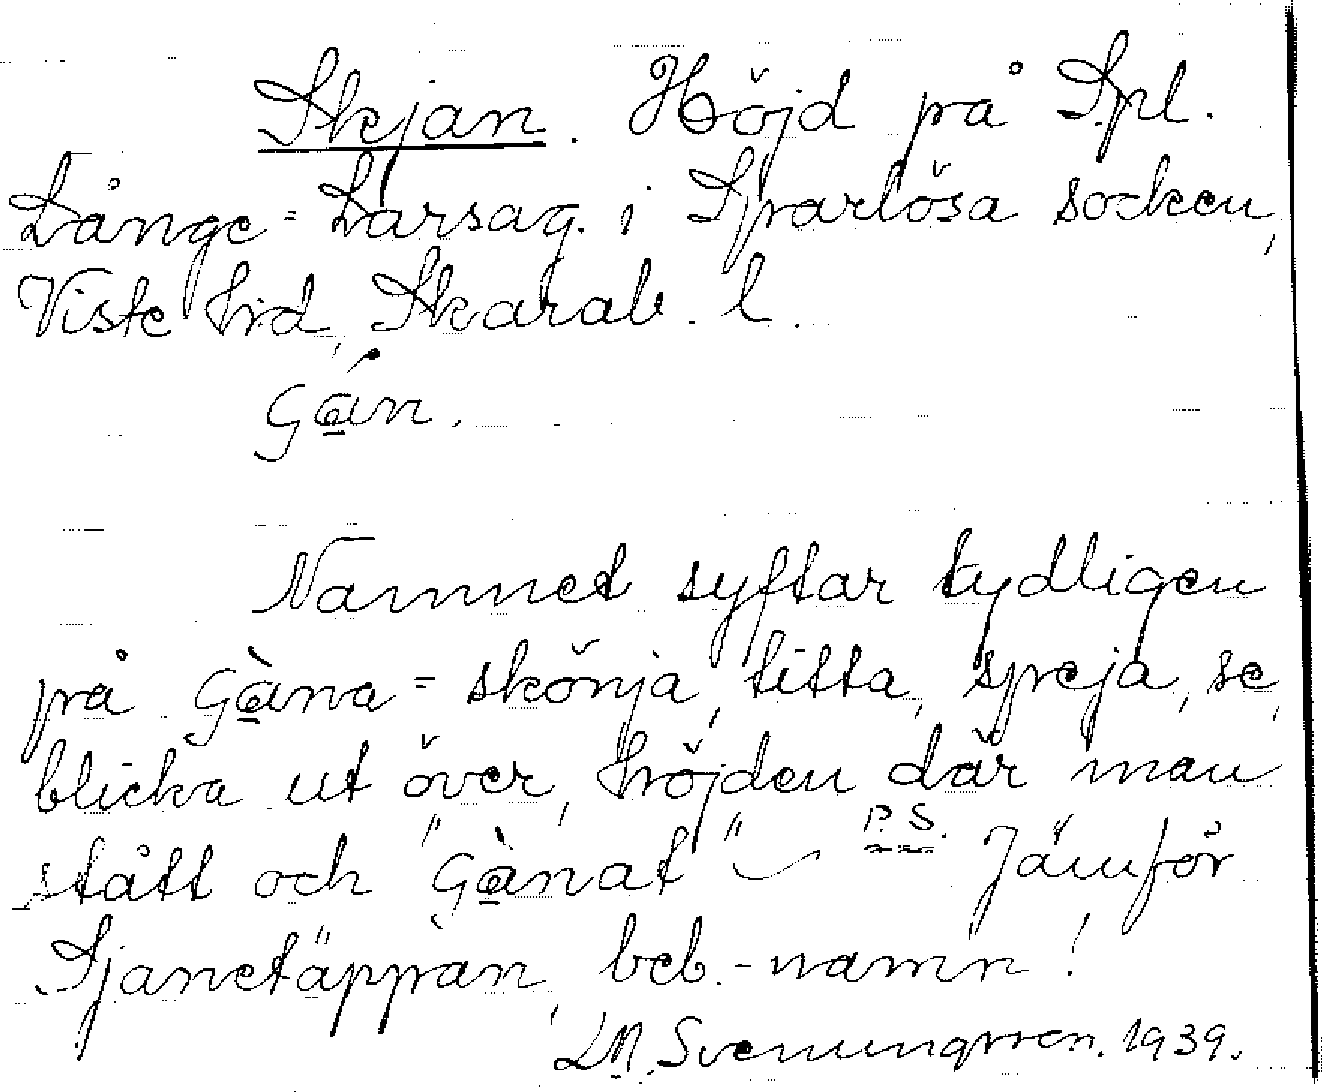 Skjan. Höjd på Spl.
Långe-Larsag. i Sparlösa socken,
Viste hrd, Skarab. l.
Namnet syftar tydligen
på = skönja, titta, speja, se,
blicka ut över, höjden där man
stått och P.S. Jämför
Sjanetäppan, beb.-namn!
LM. Svenungsson. 1939.